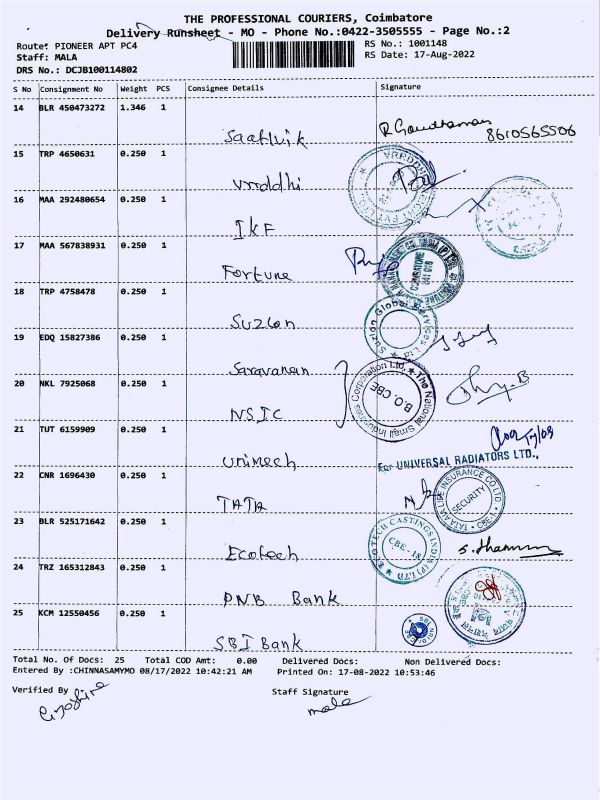 THE PROFESSIONAL COURIERS, Coimbatore
Delivery Runsheet - MO - Phone No.:0422-3505555 - Page No.:2
Route: PIONEER APT PC4 RS No.: 1001148
Staff: MALA RS Date: 17-Aug-2022
DRS No.: DCJB100114802
S No Consignment No Weight PCS Consignee Details Signature
14 BLR 450473272 1.346 1
Saatvik R Gowthaman 8610565506
15 TRP 4650631 0.250 1
Vrrddhi
16 MAA 292480654 0.250 1
IKF
17 MAA 567838931 0.250 1
Fortune COIMBATORE 641 018
18 TRP 4758478 0.250 1
Suzlon Suzlon Global Services Ltd
19 EDQ 15827386 0.250 1
Saravanan
20 NKL 7925068 0.250 1
NSIC The National Small Industries Corporation Ltd. B.O. CBE
21 TUT 6159909 0.250 1
Unimech For UNIVERSAL RADIATORS LTD.,
22 CNR 1696430 0.250 1
TATA TATA AIA LIFE INSURANCE CO LTD SECURITY CBE
23 BLR 525171642 0.250 1
Ecotech ECOTECH CASTINGS INDIA (P) LTD CBE-18
24 TRZ 165312843 0.250 1
PNB Bank
25 KCM 12550456 0.250 1
SBI Bank
Total No. Of Docs: 25 Total COD Amt: 0.00 Delivered Docs: Non Delivered Docs:
Entered By :CHINNASAMYMO 08/17/2022 10:42:21 AM Printed On: 17-08-2022 10:53:46
Verified By Staff Signature
mala